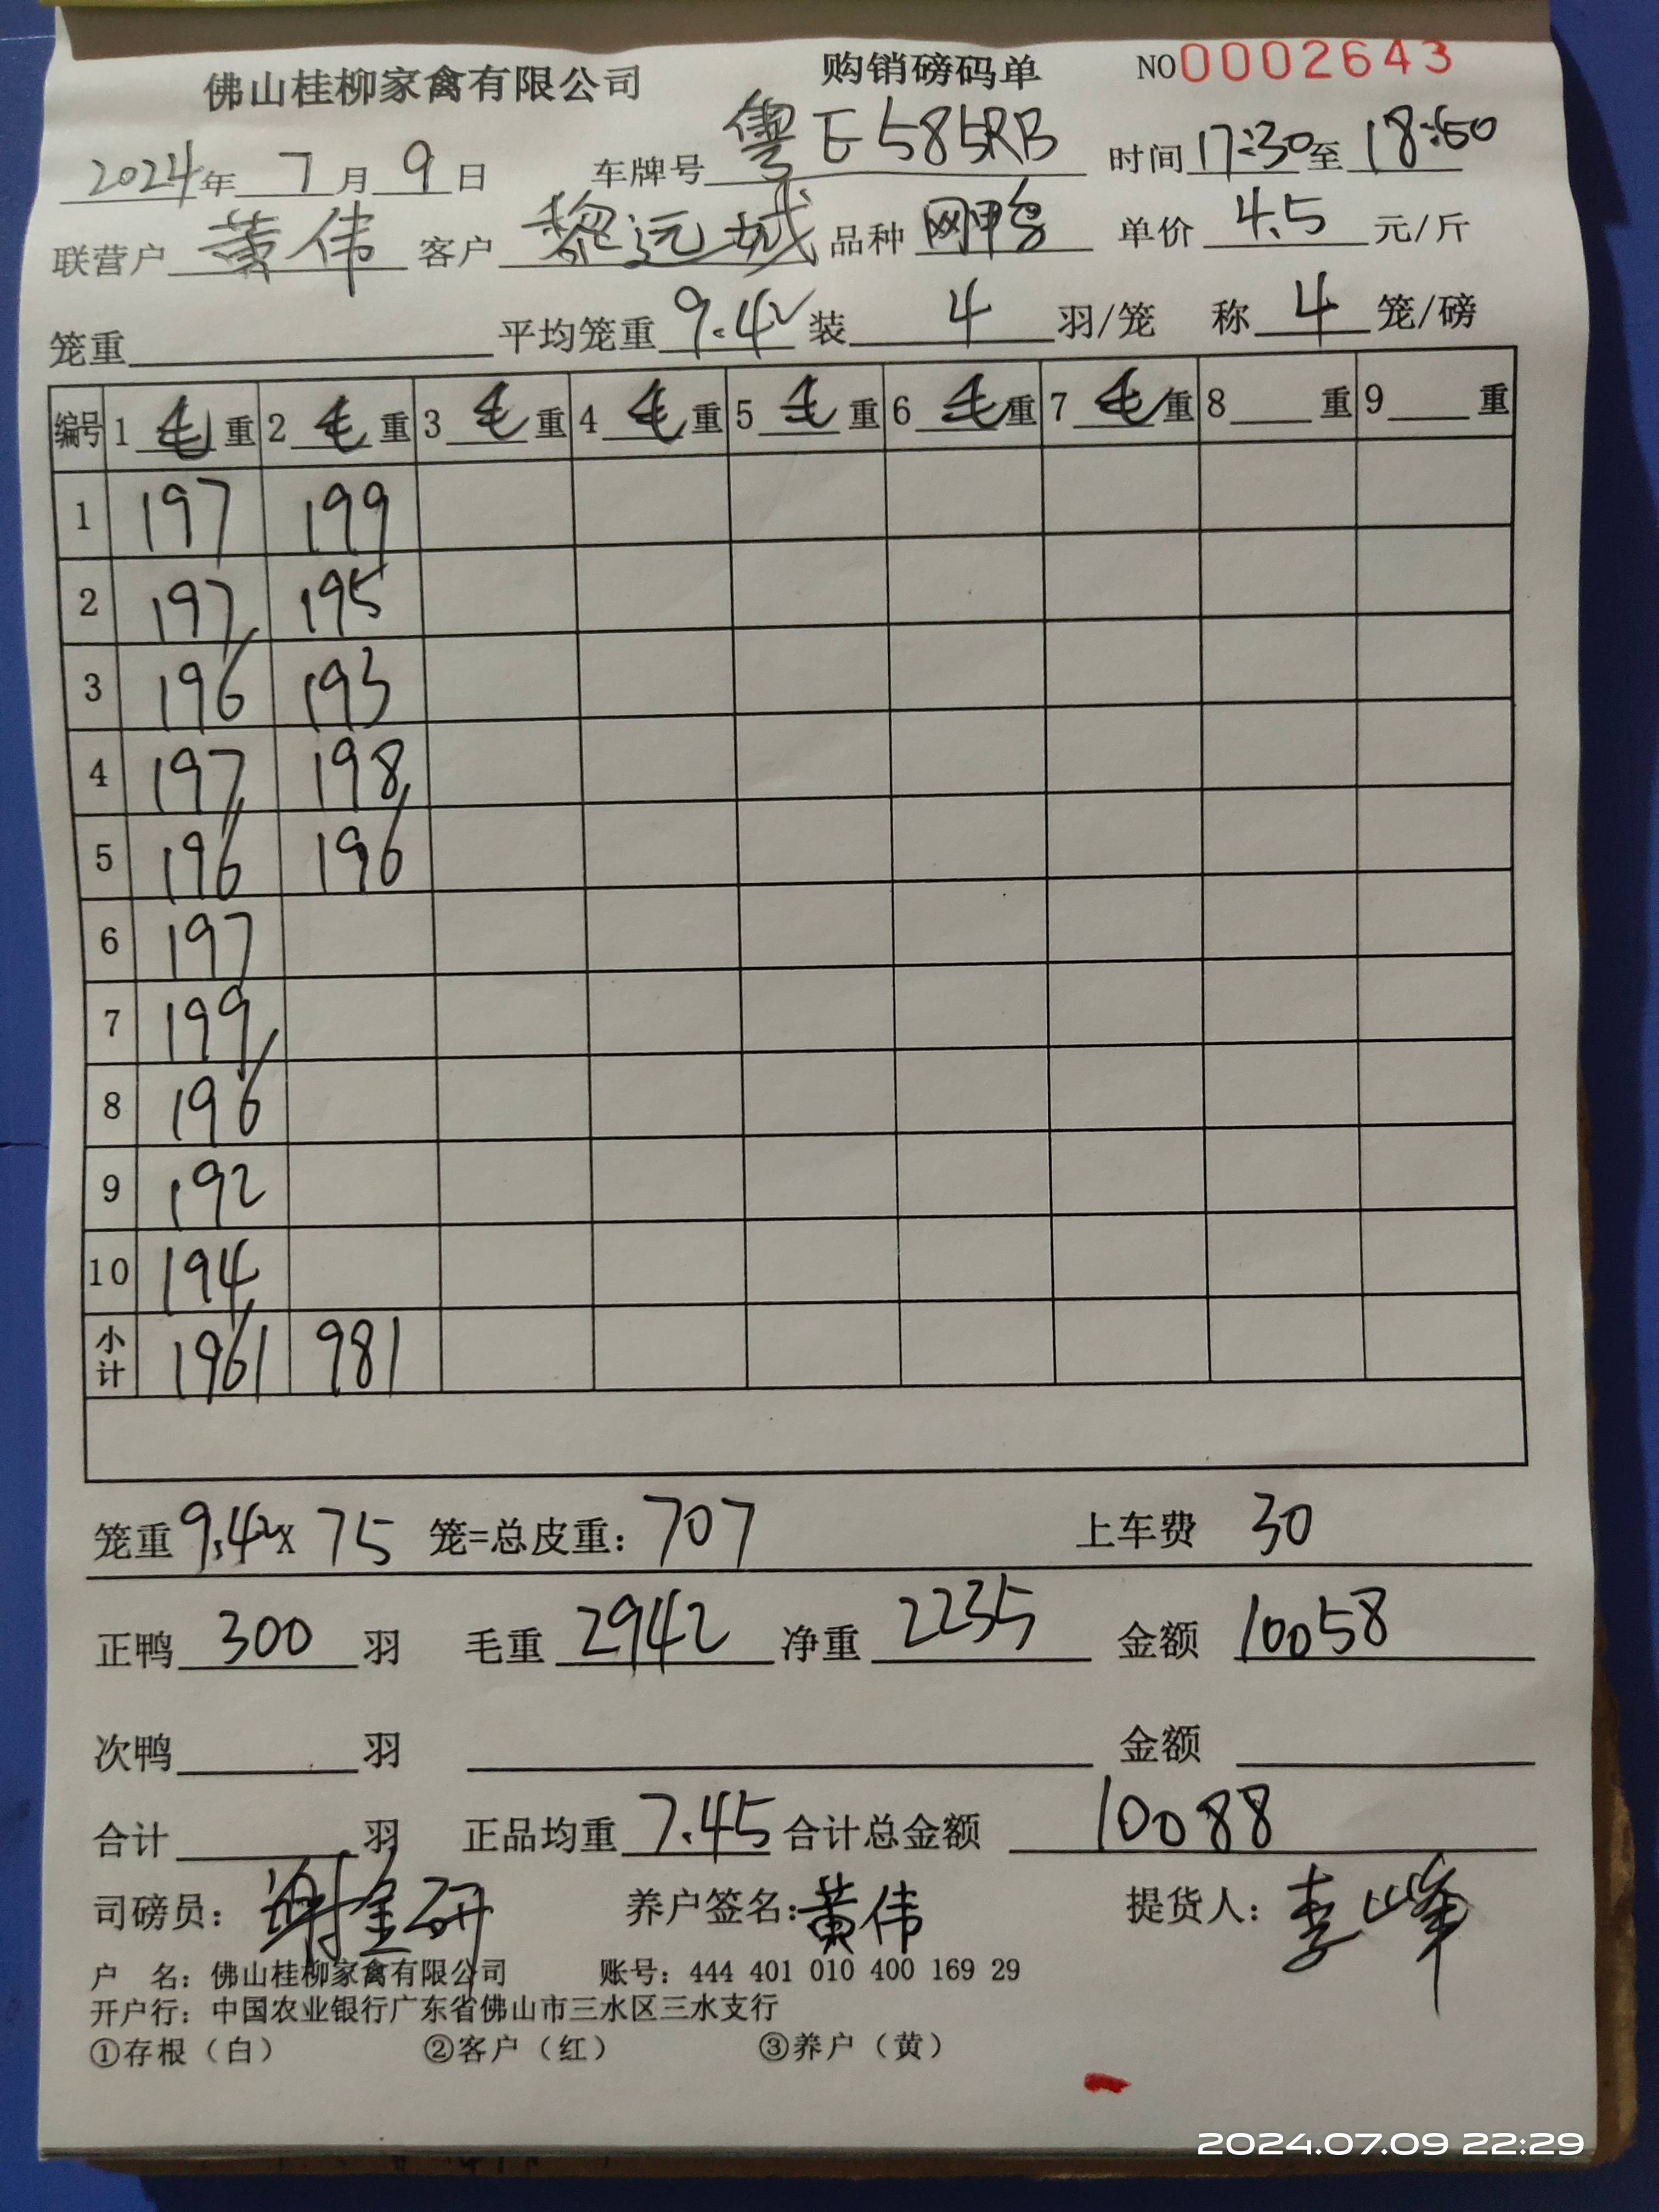 佛山桂柳家禽有限公司 购销磅码单 NO0002643
2024年7月9日 车牌号粤E585RB 时间17:30至18:50
联营户黄伟 客户黎远城 品种网鸭 单价4.5元/斤
笼重 平均笼重9.42装4羽/笼 称4笼/磅
编号 1毛重 2毛重 3毛重 4毛重 5毛重 6毛重 7毛重 8重 9重
1 197 199
2 197 195
3 196 193
4 197 198
5 196 196
6 197
7 199
8 196
9 192
10 194
小计 1961 981
笼重9.42X75笼=总皮重：707 上车费 30
正鸭300羽 毛重2942净重2235 金额10058
次鸭羽 金额
合计羽 正品均重7.45合计总金额10088
司磅员：谢金研 养户签名：黄伟 提货人：李峰
户 名：佛山桂柳家禽有限公司 账号：444 401 010 400 169 29
开户行：中国农业银行广东省佛山市三水区三水支行
①存根（白） ②客户（红） ③养户（黄）
2024.07.09 22:29